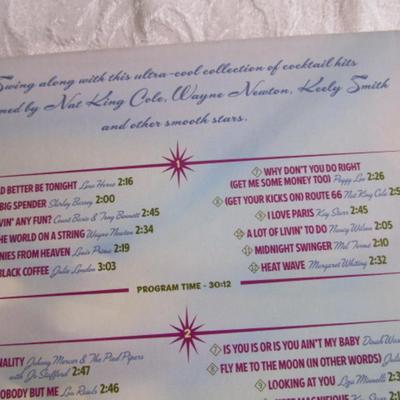 Swing along with this ultra-cool collection of cocktail hits
Nat King Cole, Wayne Newton, Keely Smith
and other smooth stars.
1
BETTER BE TONIGHT Lena Horne 2:16
BIG SPENDER Shirley Bassey 2:00
ANY FUN? Count Basie & Tony Bennett 2:45
THE WORLD ON A STRING Wayne Newton 2:34
FROM HEAVEN Louis Prima 2:19
BLACK COFFEE Julie London 3:03
7 WHY DON'T YOU DO RIGHT
(GET ME SOME MONEY TOO) Peggy Lee 2:26
8 (GET YOUR KICKS ON) ROUTE 66 Nat King Cole
9 I LOVE PARIS Kay Starr 2:45
10 A LOT OF LIVIN' TO DO Nancy Wilson 2:05
11 MIDNIGHT SWINGER Mel Torme 2:10
12 HEAT WAVE Margaret Whiting 2:32
PROGRAM TIME - 30:12
2
Johnny Mercer & The Pied Pipers
with Jo Stafford 2:47
BUT ME Lou Rawls 2:46
7 IS YOU IS OR IS YOU AIN'T MY BABY Dinah
8 FLY ME TO THE MOON (IN OTHER WORDS) Julie
9 LOOKING AT YOU Liza Minnelli
MAGNIFIQUE Kay Starr